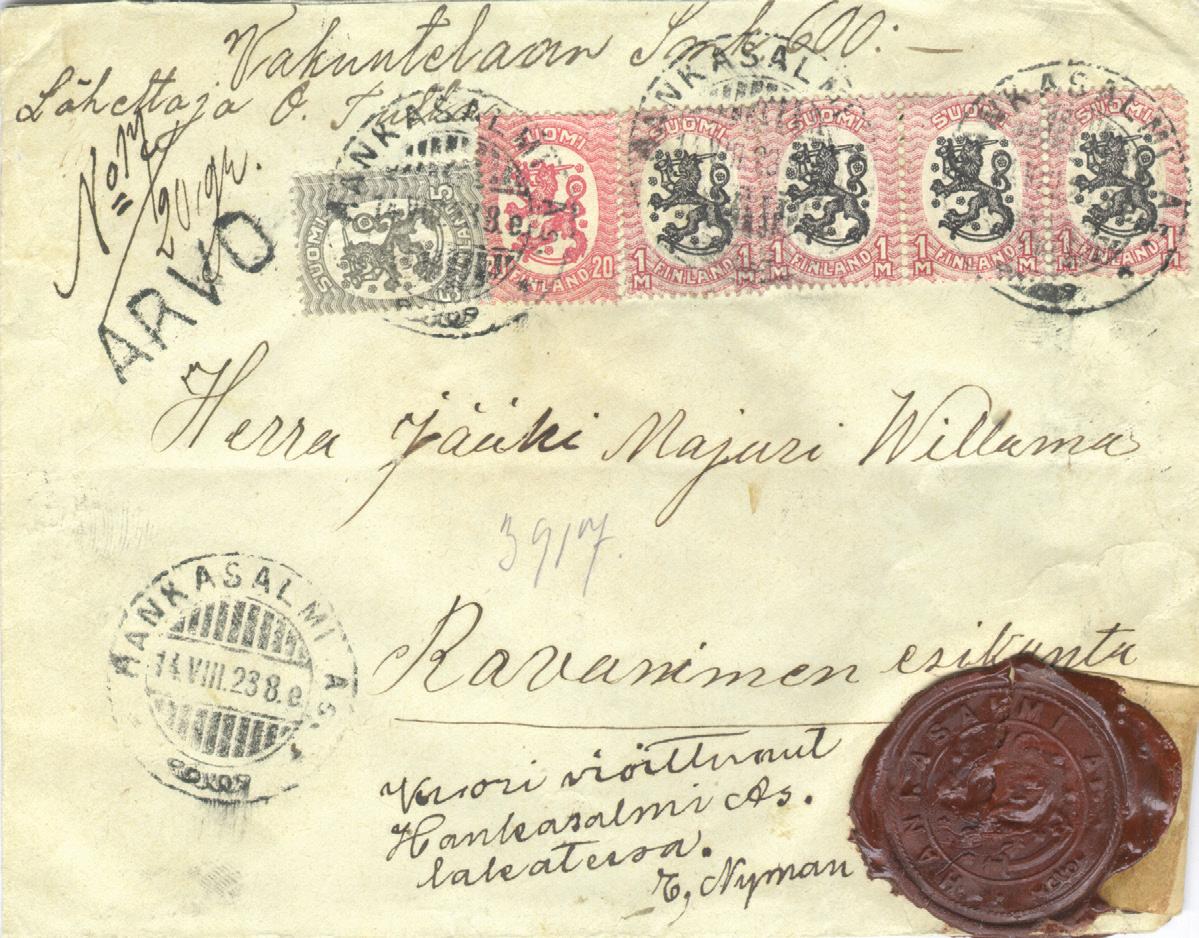 Vakuutelaan Smk 600:-
Lähettäjä O.
20 gr.
ARVO
HANKASALMI AS.
SUOMI
5 PENNIÄ 5
SUOMI
FINLAND 20
SUOMI
1 M FINLAND 1 M
SUOMI
1 M FINLAND 1 M
SUOMI
1 M FINLAND 1 M
SUOMI
1 M FINLAND 1 M
HANKASALMI
HANKASALMI A
Herra Jääki Majuri Willama
3917.
Ravanimen esikunta
HANKASALMI AS.
14.VIII.23 8.e
Kuori vioittunut
Hankasalmi As.
lakatessa.
E, Nyman
HANKASALMI AS